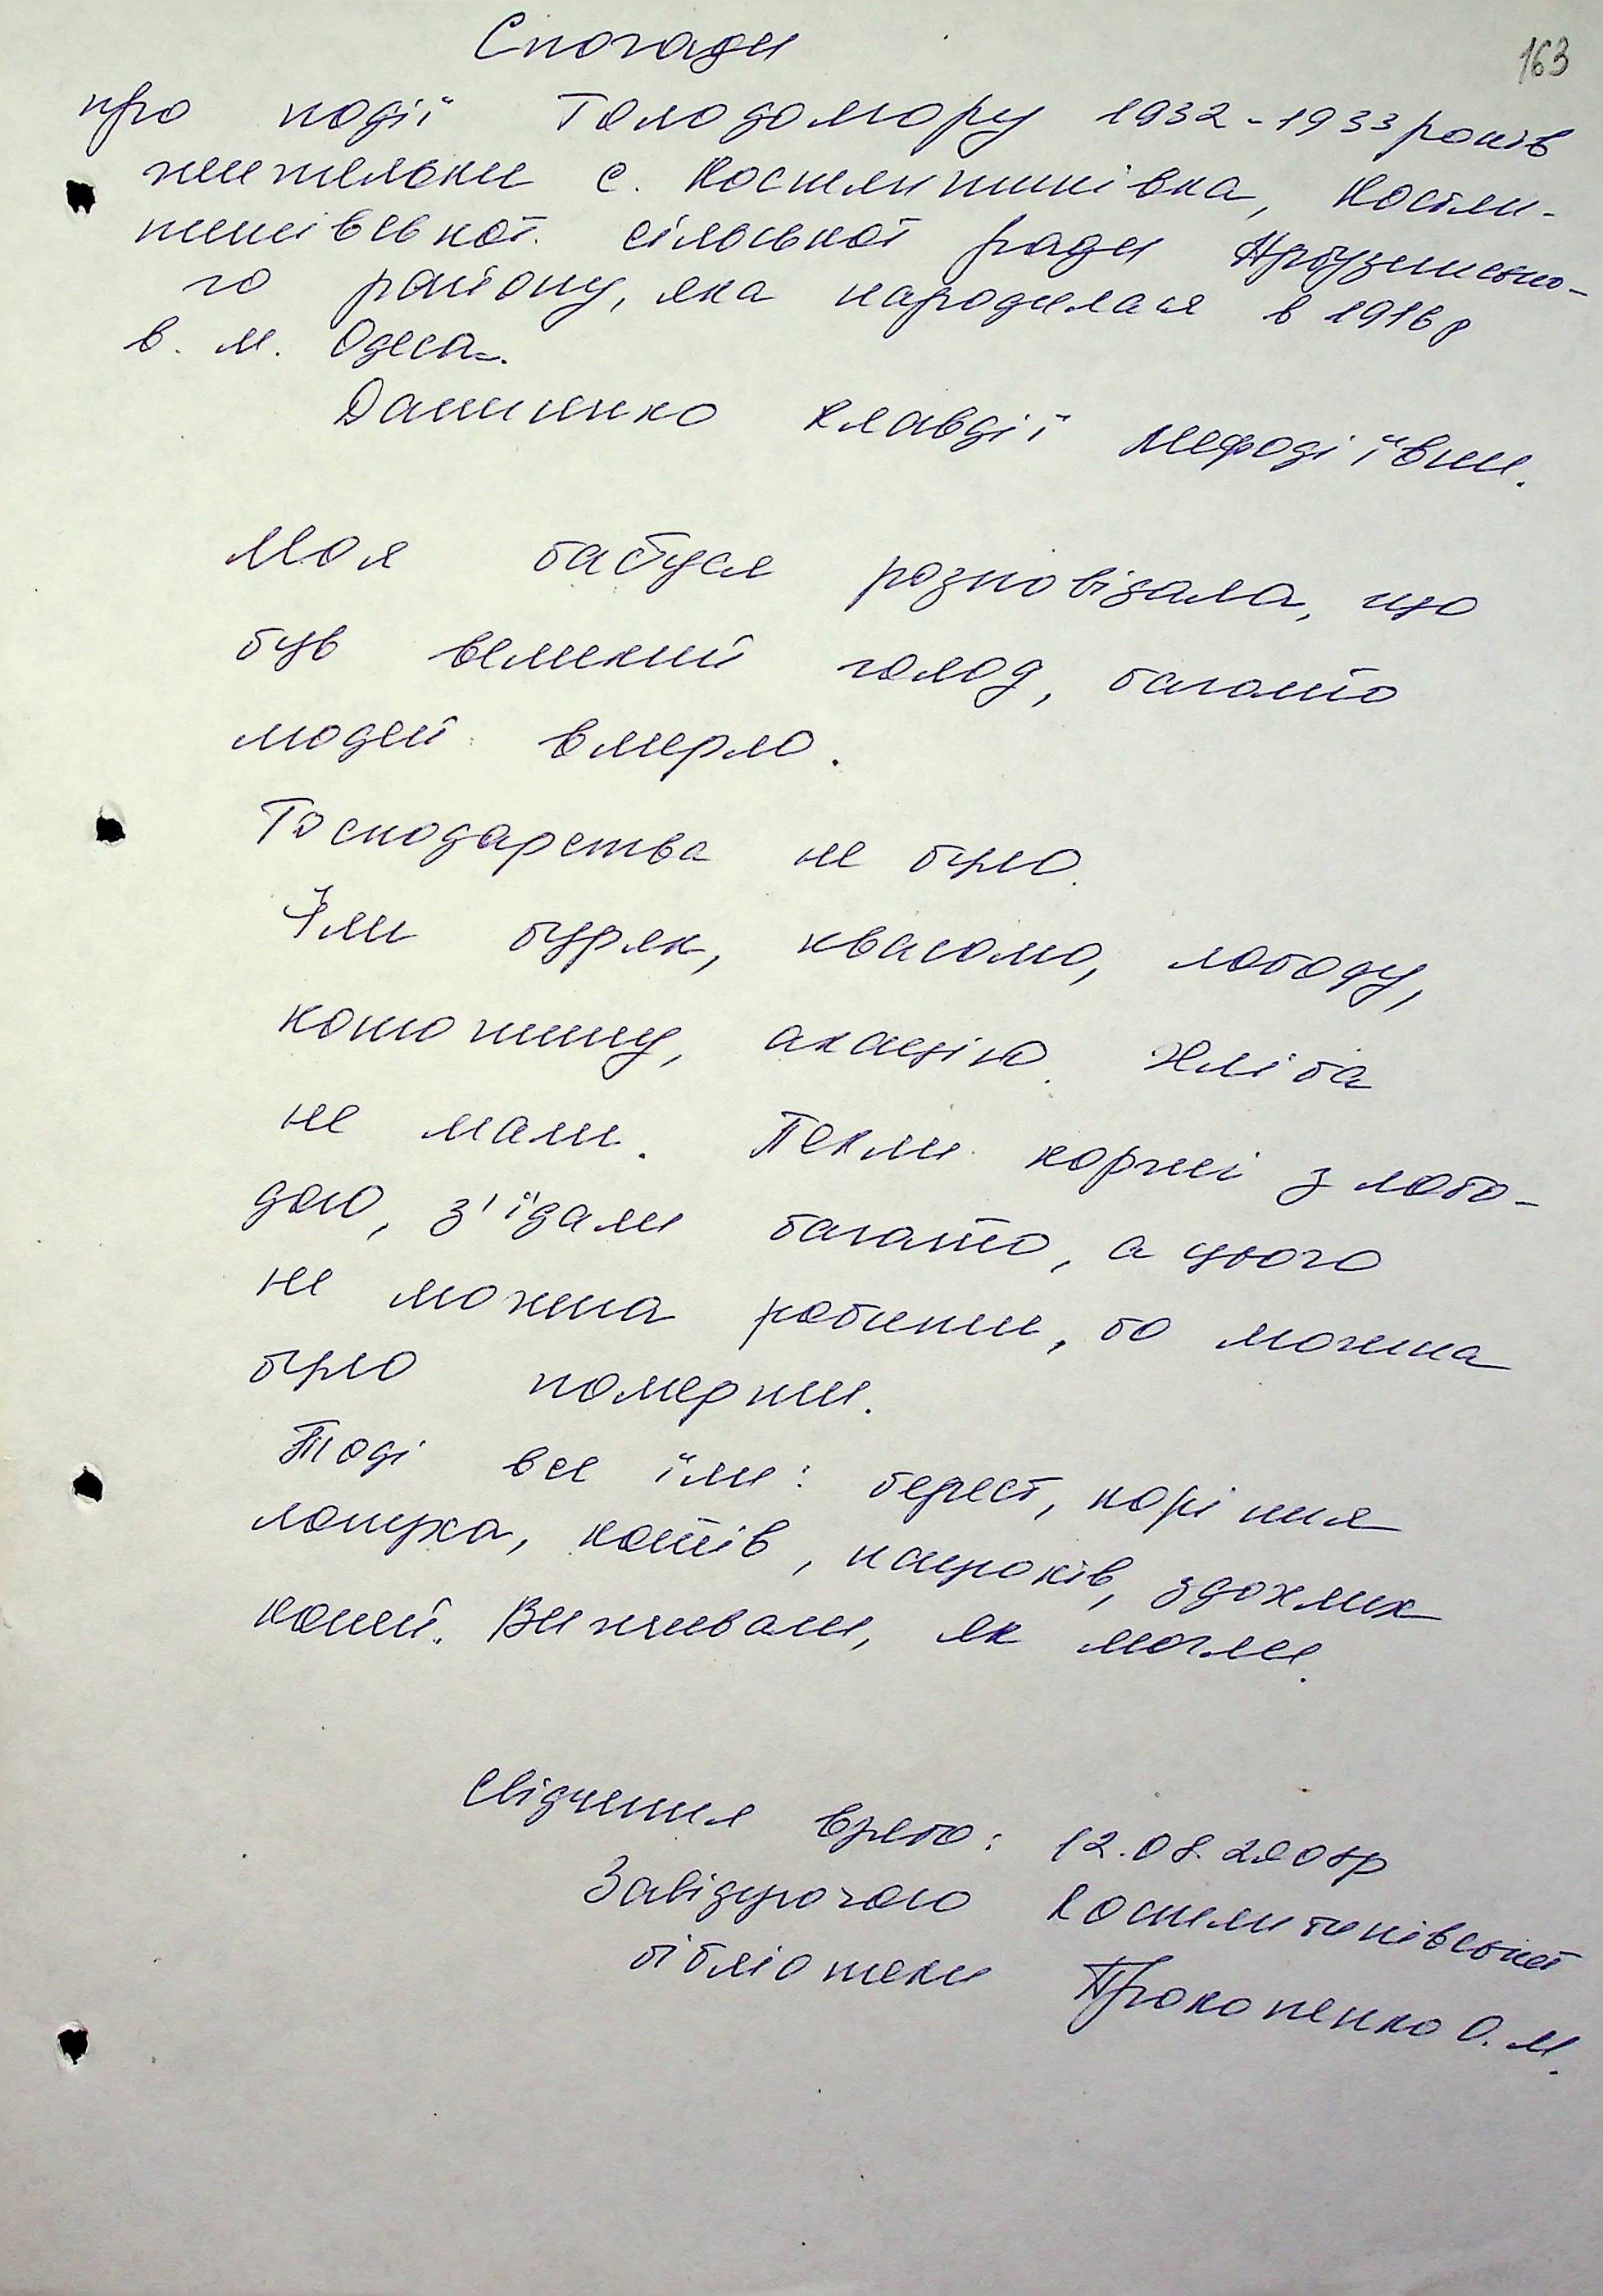 Спогади
163
про події Голодомору 1932-1933 років
жительки с. Костянтинівка, Костян-
тинівської сільської ради Арбузинсько-
го району, яка народилася в 1916 р
в. м. Одеса.
Даниленко Клавдії Мефодіївни.
Моя бабуся розповідала, що
був великий голод, багато
людей вмерло.
Господарства не було.
Їли буряк, квасолю, лободу,
конюшину, акацію. Хліба
не мали. Пекли коржі з лобо-
дою, з'їдали багато, а цього
не можна робити, бо можна
було померти.
Тоді все їли: берест, коріння
лопуха, котів, пацюків, здохлих
коней. Виживали, як могли.
Свідчення взято: 12.08.2008р
Завідуючою Костянтинівської
бібліотеки Прокопенко О. М.